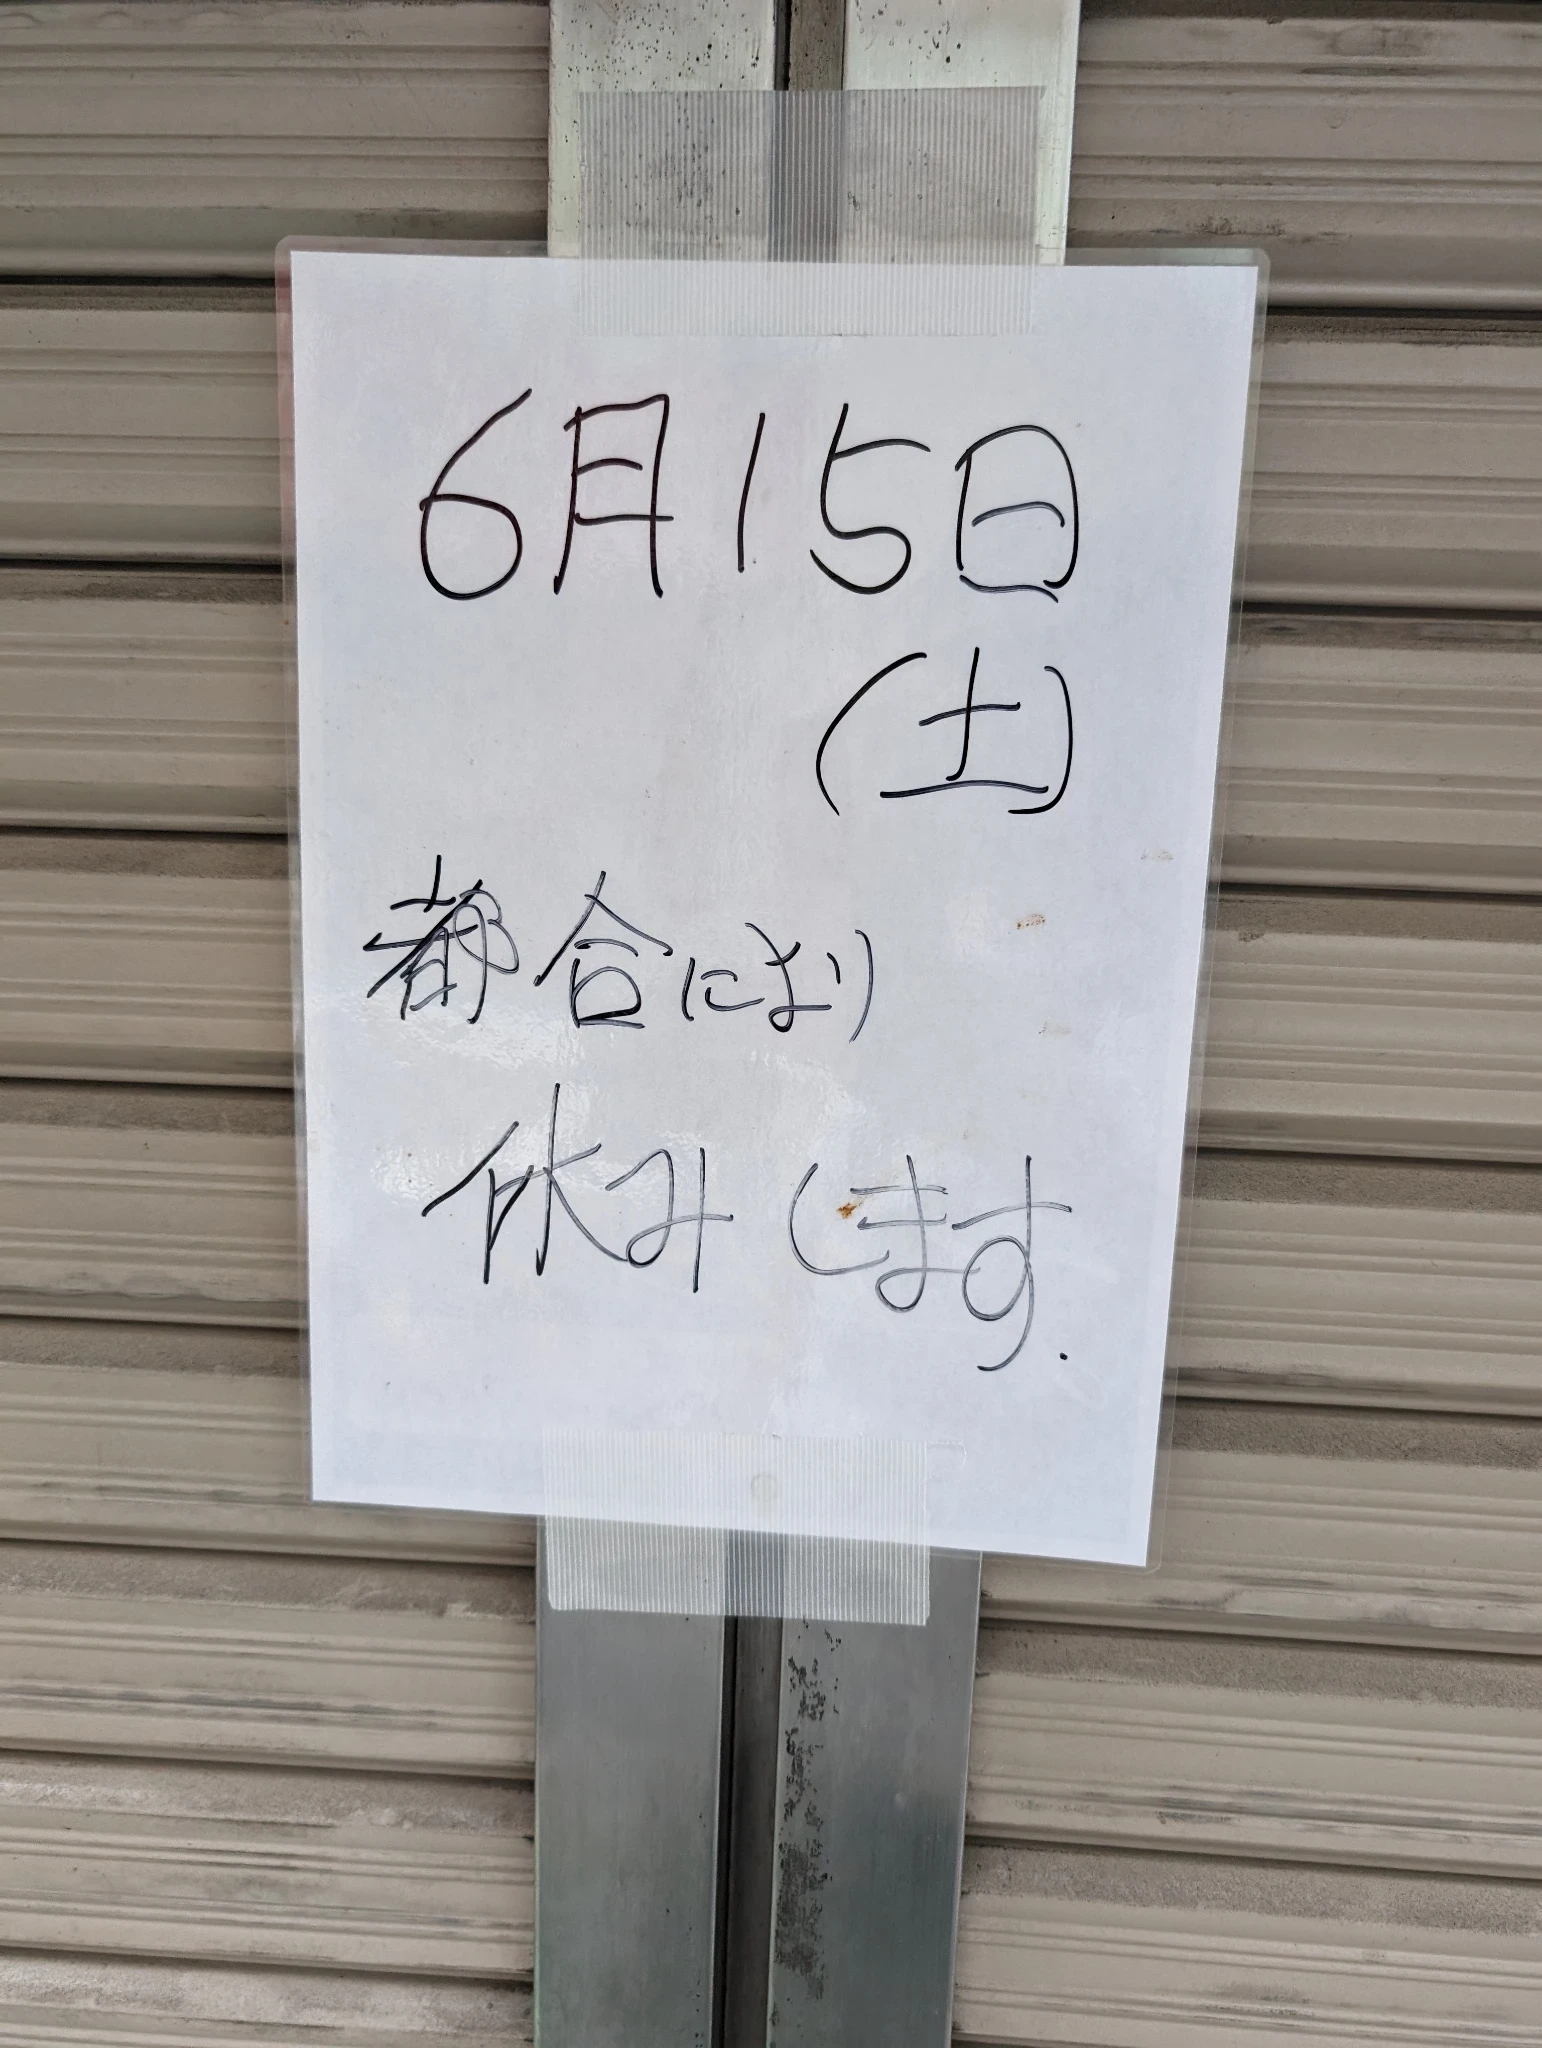 6月15日
(土)
都合により
休みします.